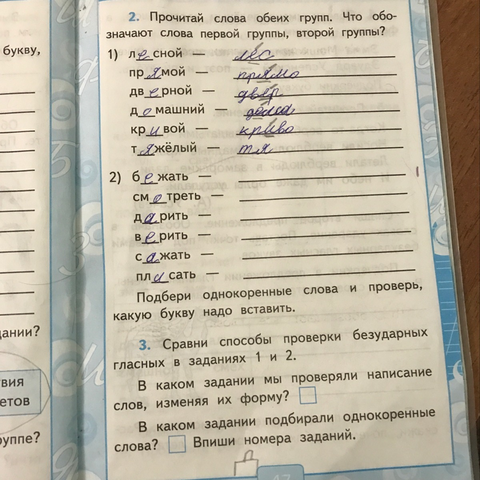 2. Прочитай слова обеих групп. Что обо-
значают слова первой группы, второй группы?
букву,
1) лесной — лес
прямой — прямо
дверной — дверь
домашний — дома
кривой — криво
тяжёлый — тя
2) бежать —
смотреть —
дарить —
верить —
сажать —
плисать —
Подбери однокоренные слова и проверь,
какую букву надо вставить.
дании?
3. Сравни способы проверки безударных
гласных в заданиях 1 и 2.
твия
етов
В каком задании мы проверяли написание
слов, изменяя их форму?
руппе?
В каком задании подбирали однокоренные
слова? Впиши номера заданий.
17